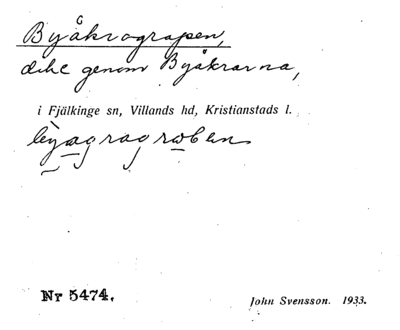 Byåkrograpen,
dike genom Byåkrarna,
i Fjälkinge sn, Villands hd, Kristianstads l.
Nr 5474.
John Svensson. 1933.